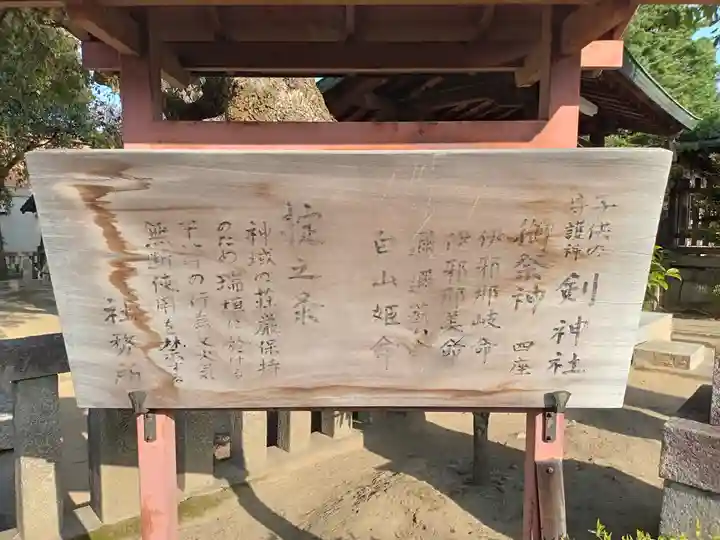 子供の
守護神
剣神社
御祭神 四座
伊邪那岐命
伊邪那美命
白山姫命
掟之象
神域の荘厳保持
のため瑞垣に於ける
行為又
無断使用を禁ずる
社務所